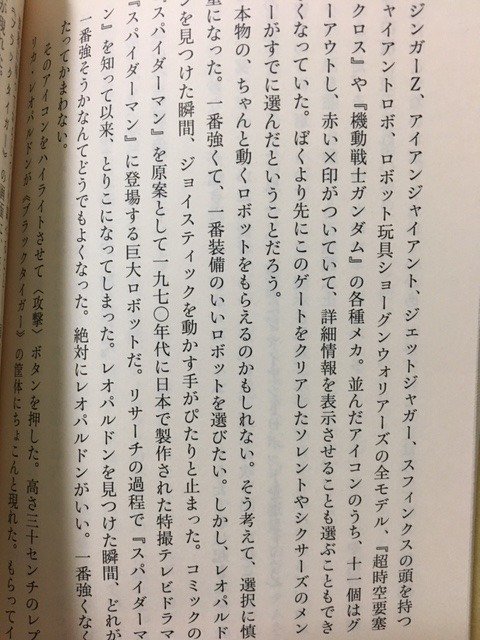 ジンガーZ、アイアンジャイアント、ジェットジャガー、スフィンクスの頭を持つ
ャイアントロボ、ロボット玩具ショーグンウォリアーズの全モデル、『超時空要塞
クロス』や『機動戦士ガンダム』の各種メカ。並んだアイコンのうち、十一個はグ
ーアウトし、赤い×印がついていて、詳細情報を表示させることも選ぶこともでき
くなっていた。ぼくより先にこのゲートをクリアしたソレントやシクサーズのメン
ーがすでに選んだということだろう。
本物の、ちゃんと動くロボットをもらえるのかもしれない。そう考えて、選択に慎
重になった。一番強くて、一番装備のいいロボットを選びたい。しかし、レオパルド
ンを見つけた瞬間、ジョイスティックを動かす手がぴたりと止まった。コミックの
スパイダーマン』を原案として一九七〇年代に日本で製作された特撮テレビドラマ
スパイダーマン』に登場する巨大ロボットだ。リサーチの過程で『スパイダーマ
ン』を知って以来、とりこになってしまった。レオパルドンを見つけた瞬間、どれが
一番強そうかなんてどうでもよくなった。絶対にレオパルドンがいい。一番強くなく
たってかまわない。
そのアイコンをハイライトさせて〈攻撃〉ボタンを押した。高さ三十センチのレプ
リカ・レオパルドンが《ブラックタイガー》の筐体にちょこんと現れた。もらってイ